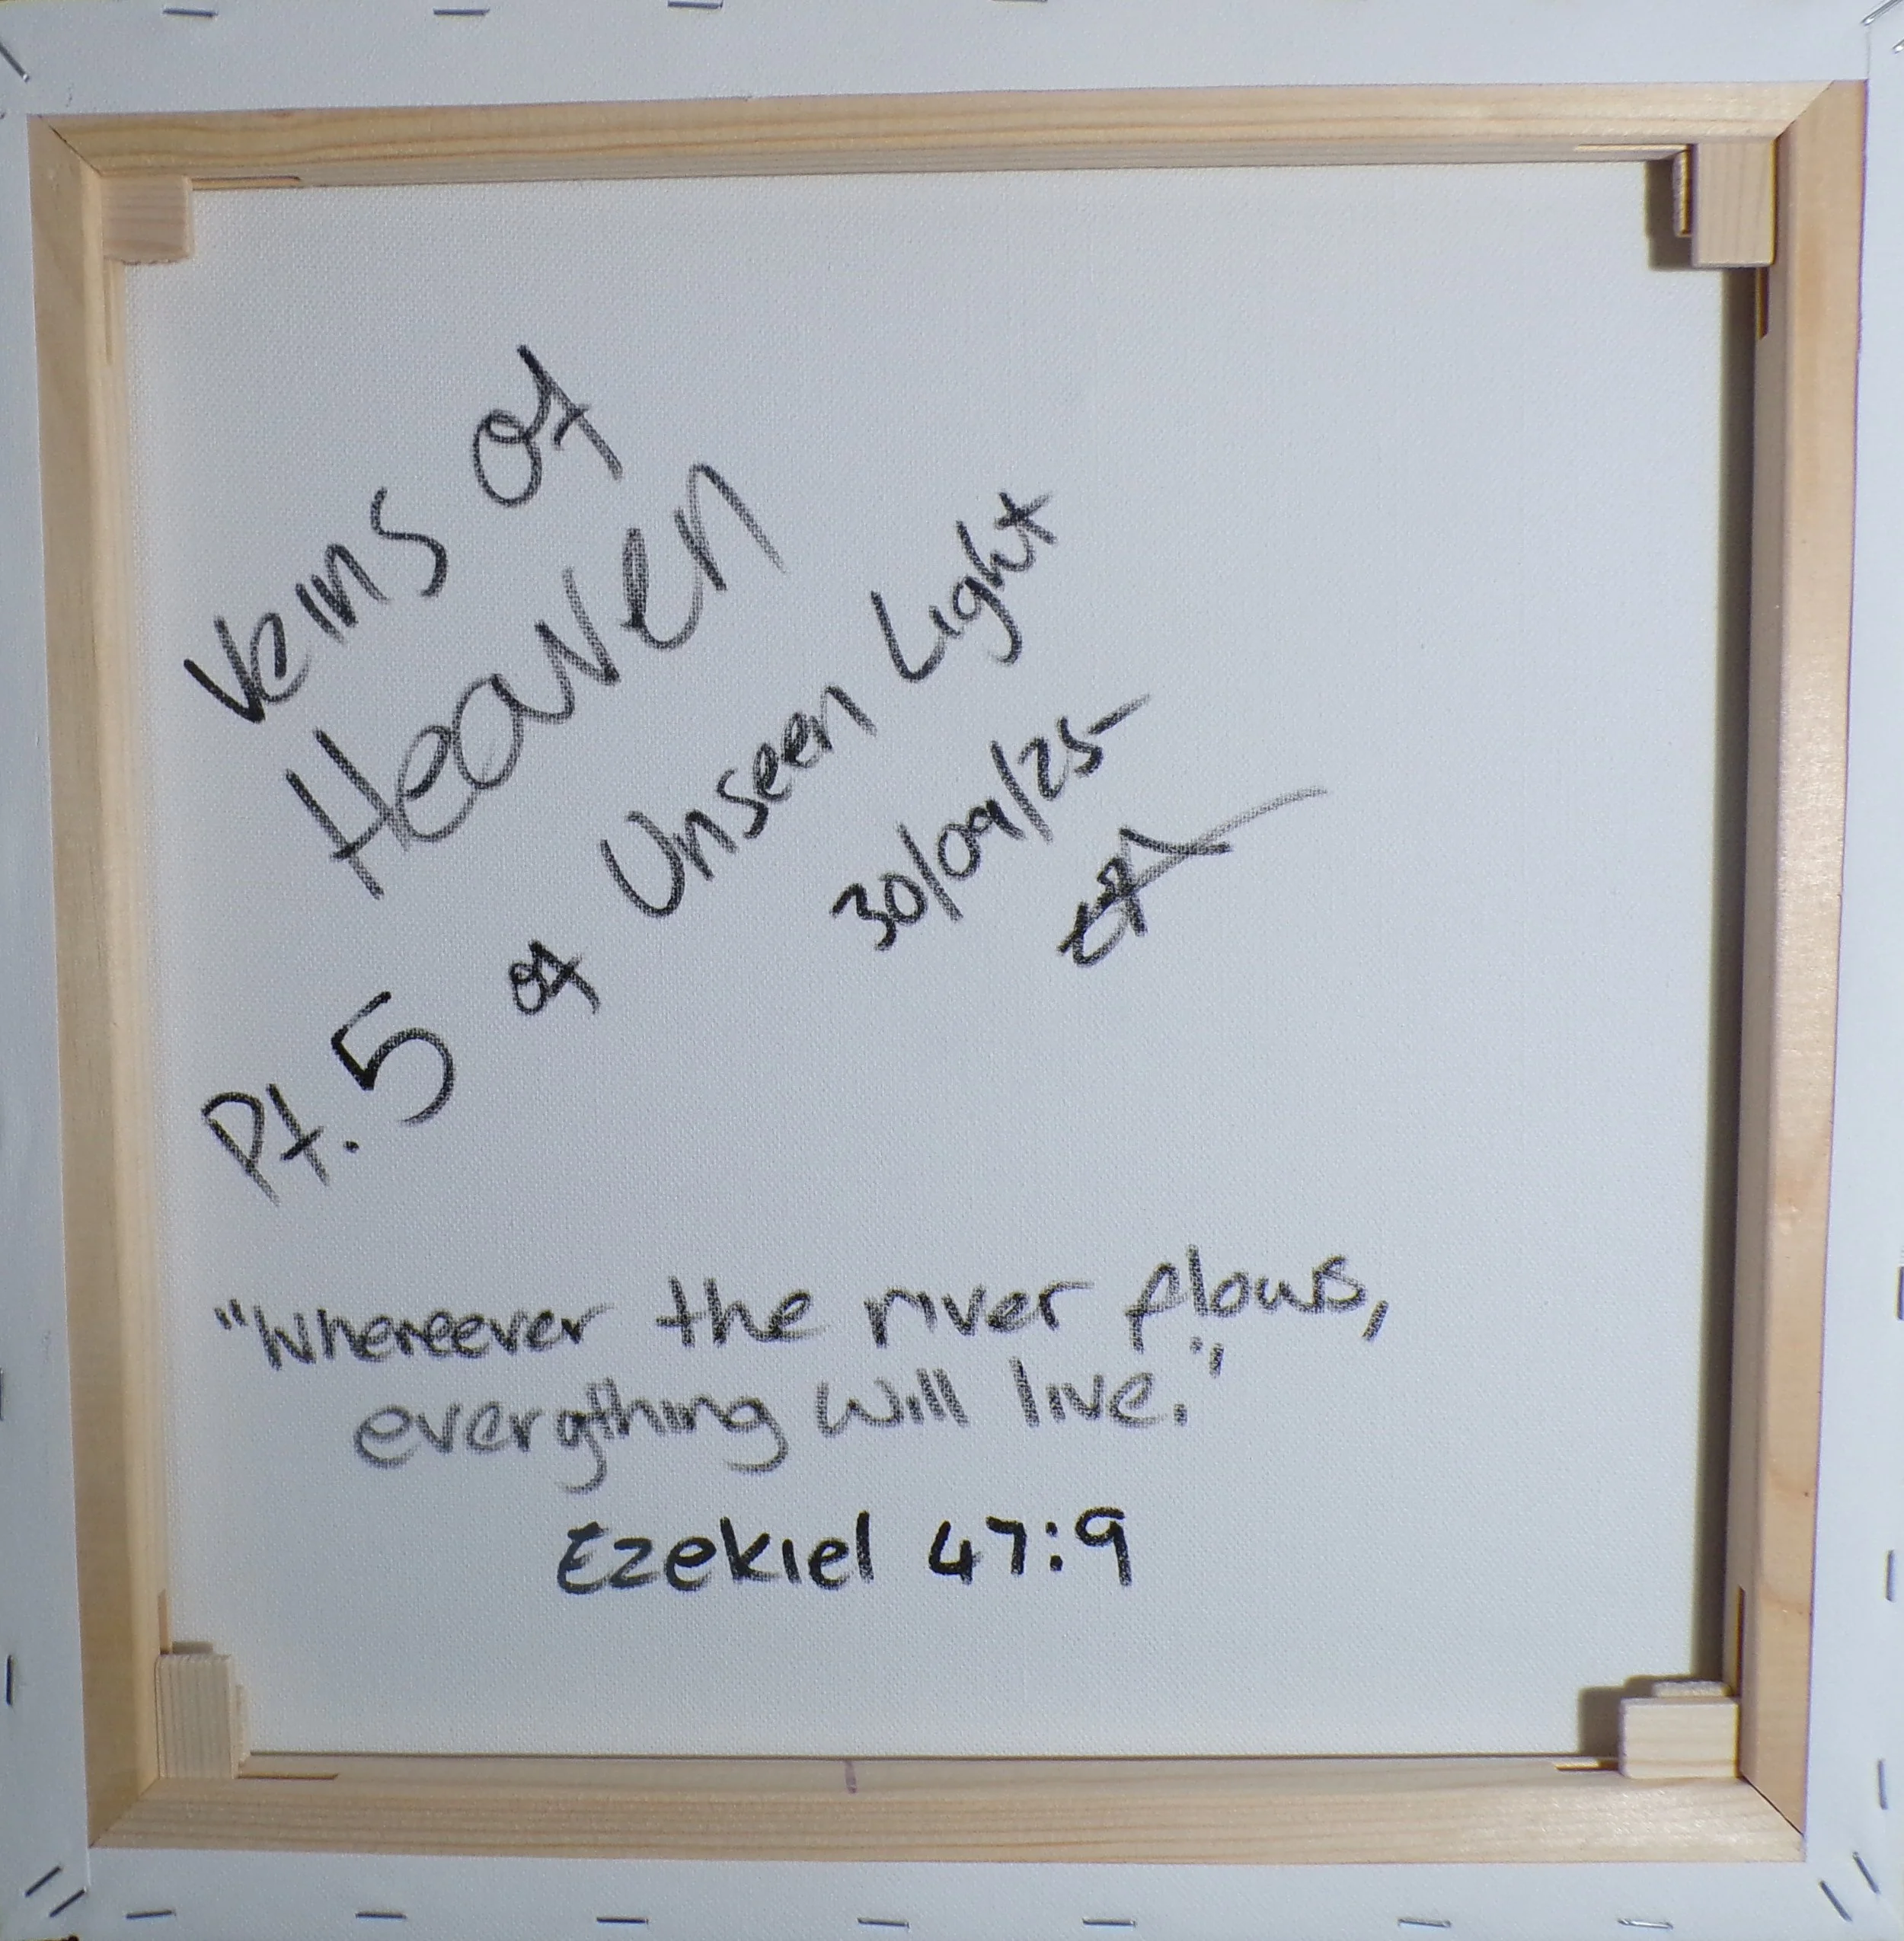 Veins of
Heaven
Pt. 5 of Unseen Light
30/09/25
"Whereever the river flows,
everything will live."
Ezekiel 47:9